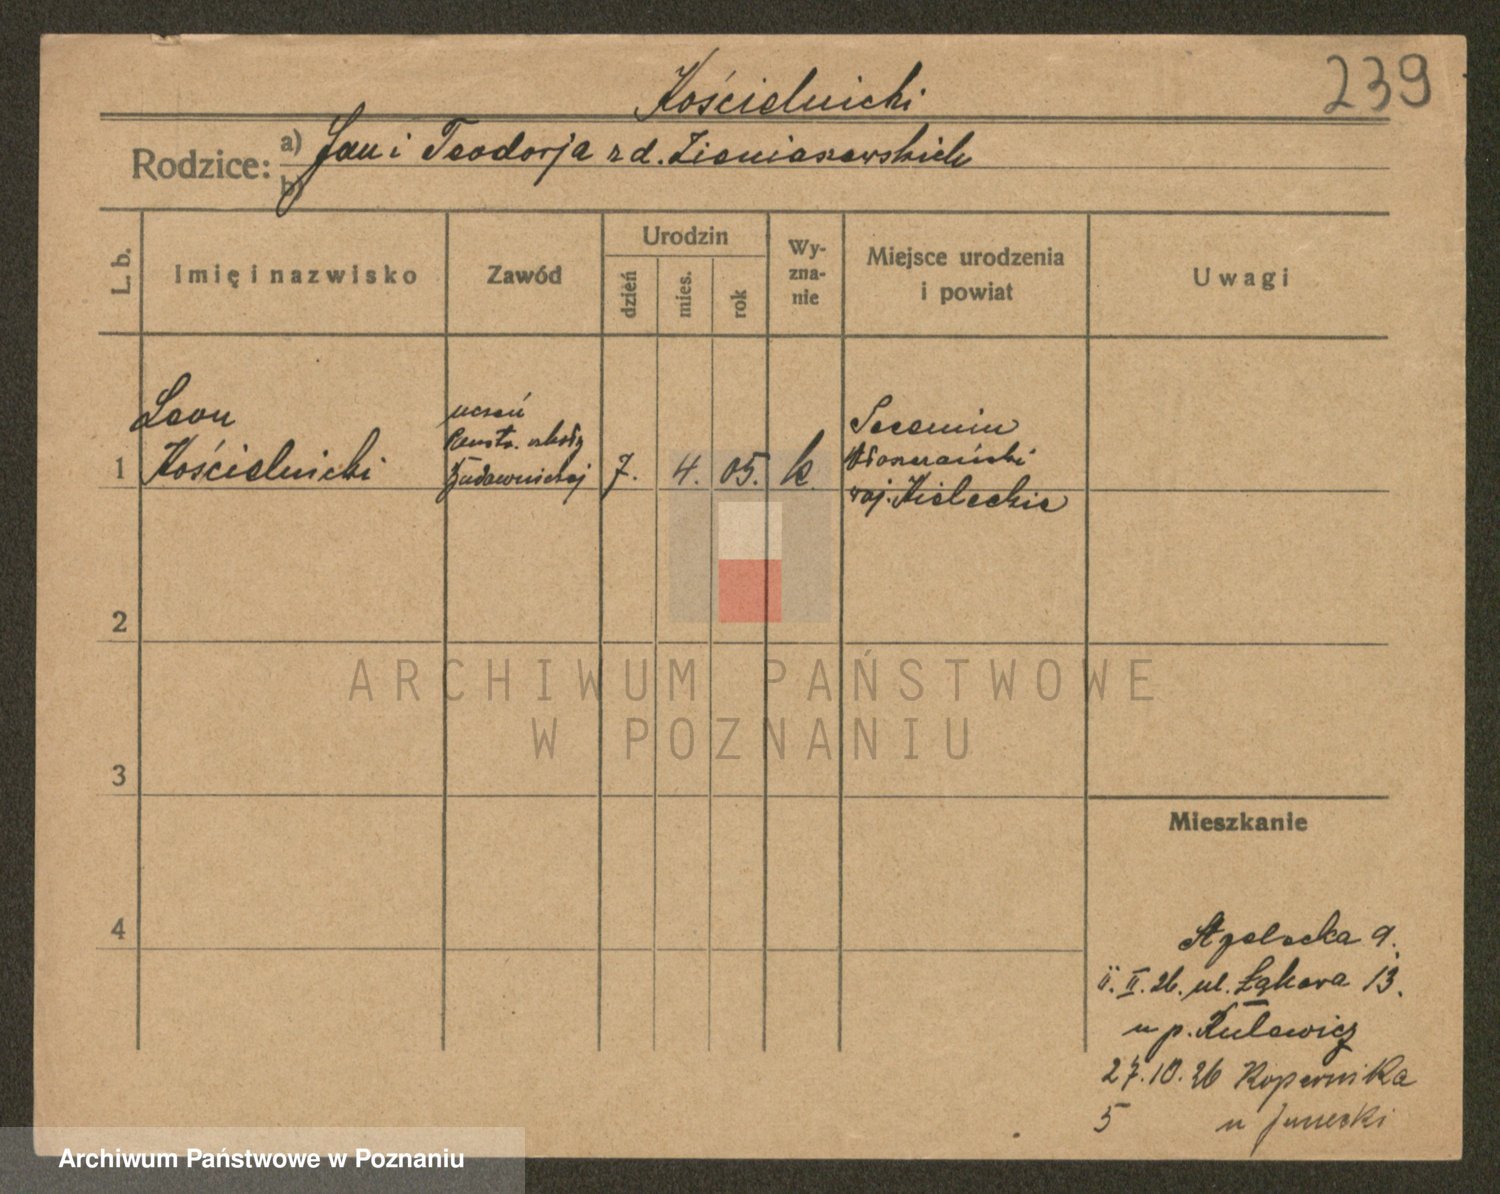 239
Kościelnicki
Rodzice: a) Jan i Teodorja z d. Ziemiaszewskich
b)
L. b.
Imię i nazwisko
Zawód
Urodzin
dzień
mies.
rok
Wy-
zna-
nie
Miejsce urodzenia
i powiat
Uwagi
Leon
Kościelnicki
uczeń
Państw. szkoły
Budownictwa
1
7. 4. 05. k.
Secemin
Włoszczański
woj. Kieleckie
2
3
4
Mieszkanie
9.
II. II. 26. ul. Łąkowa 13.
u p. Kulewicz
27. 10. 26 Kopernika
5 u
ARCHIWUM PAŃSTWOWE
W POZNANIU
Archiwum Państwowe w Poznaniu